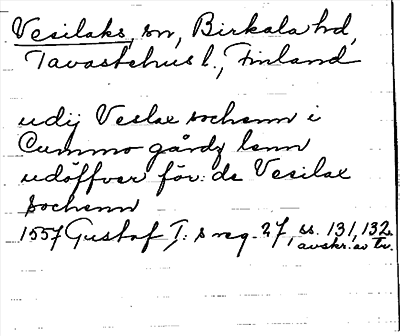 Vesilaks, sn, Birkala hd,
Tavastehus l., Finland
udij Veslax sochenn i
Cummo gårdz lenn
udöffver för: de Vesilax
sochenn
1557 Gustaf I: s reg. 27, ss. 131, 132
avskr. av Tv.